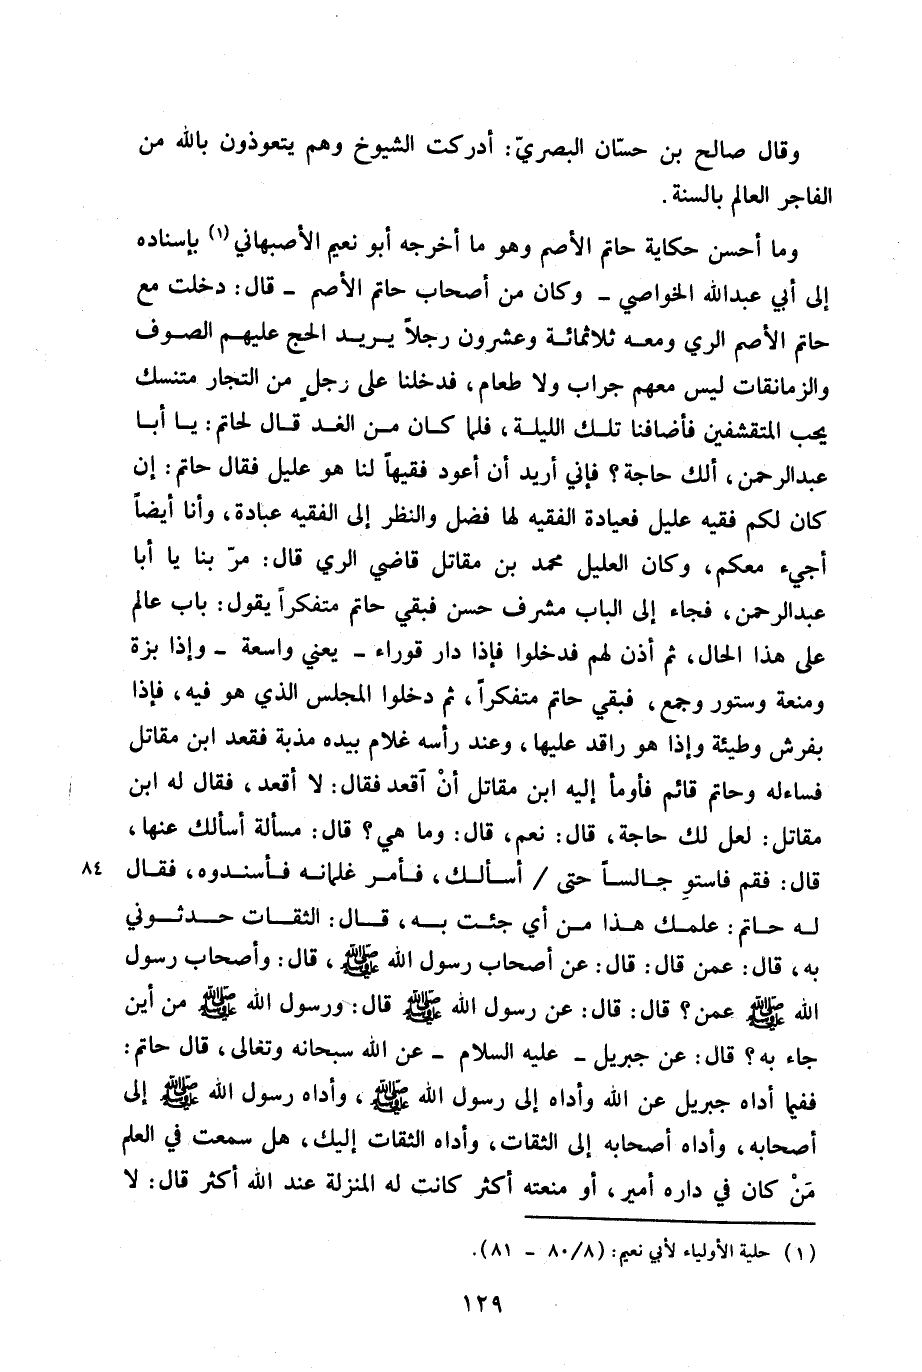 وقال صالح بن حسّان البصريّ: أدركت الشيوخ وهم يتعوذون بالله من
الفاجر العالم بالسنة.
وما أحسن حكاية حاتم الأصم وهو ما أخرجه أبو نعيم الأصبهاني(١) بإسناده
إلى أبي عبدالله الخواصي ـ وكان من أصحاب حاتم الأصم ـ قال: دخلت مع
حاتم الأصم الري ومعه ثلاثمائة وعشرون رجلاً يريد الحج عليهم الصوف
والزمانقات ليس معهم جراب ولا طعام، فدخلنا على رجلٍ من التجار متنسك
يحب المتقشفين فأضافنا تلك الليلة، فلما كان من الغد قال لحاتم: يا أبا
عبدالرحمن، ألك حاجة؟ فإني أريد أن أعود فقيهاً لنا هو عليل فقال حاتم: إن
كان لكم فقيه عليل فعيادة الفقيه لها فضل والنظر إلى الفقيه عبادة، وأنا أيضاً
أجيء معكم، وكان العليل محمد بن مقاتل قاضي الري قال: مرّ بنا يا أبا
عبدالرحمن، فجاء إلى الباب مشرف حسن فبقي حاتم متفكراً يقول: باب عالم
على هذا الحال، ثم أذن لهم فدخلوا فإذا دار قوراء ـ يعني واسعة ـ وإذا بزة
ومنعة وستور وجمع، فبقي حاتم متفكراً، ثم دخلوا المجلس الذي هو فيه، فإذا
بفرش وطيئة وإذا هو راقد عليها، وعند رأسه غلام بيده مذبة فقعد ابن مقاتل
فساءله وحاتم قائم فأومأ إليه ابن مقاتل أنْ آقعد فقال: لا أقعد، فقال له ابن
مقاتل: لعل لك حاجة، قال: نعم، قال: وما هي؟ قال: مسألة أسألك عنها،
قال: فقم فاستوِ جالساً حتى / أسألك، فأمر غلمانه فأسندوه، فقال ٨٤
له حاتم: علمك هذا من أي جئت به، قال: الثقات حدثوني
به، قال: عمن قال: قال: عن أصحاب رسول الله ﷺ، قال: وأصحاب رسول
الله ﷺ عمن؟ قال: قال: عن رسول الله ﷺ قال: ورسول الله ﷺ من أين
جاء به؟ قال: عن جبريل ـ عليه السلام ـ عن الله سبحانه وتعالى، قال حاتم:
ففيما أداه جبريل عن الله وأداه إلى رسول الله ﷺ، وأداه رسول الله ﷺ إلى
أصحابه، وأداه أصحابه إلى الثقات، وأداه الثقات إليك، هل سمعت في العلم
مَنْ كان في داره أمير، أو منعته أكثر كانت له المنزلة عند الله أكثر قال: لا
(١) حلية الأولياء لأبي نعيم: (٨٠/٨ ـ ٨١).
١٢٩